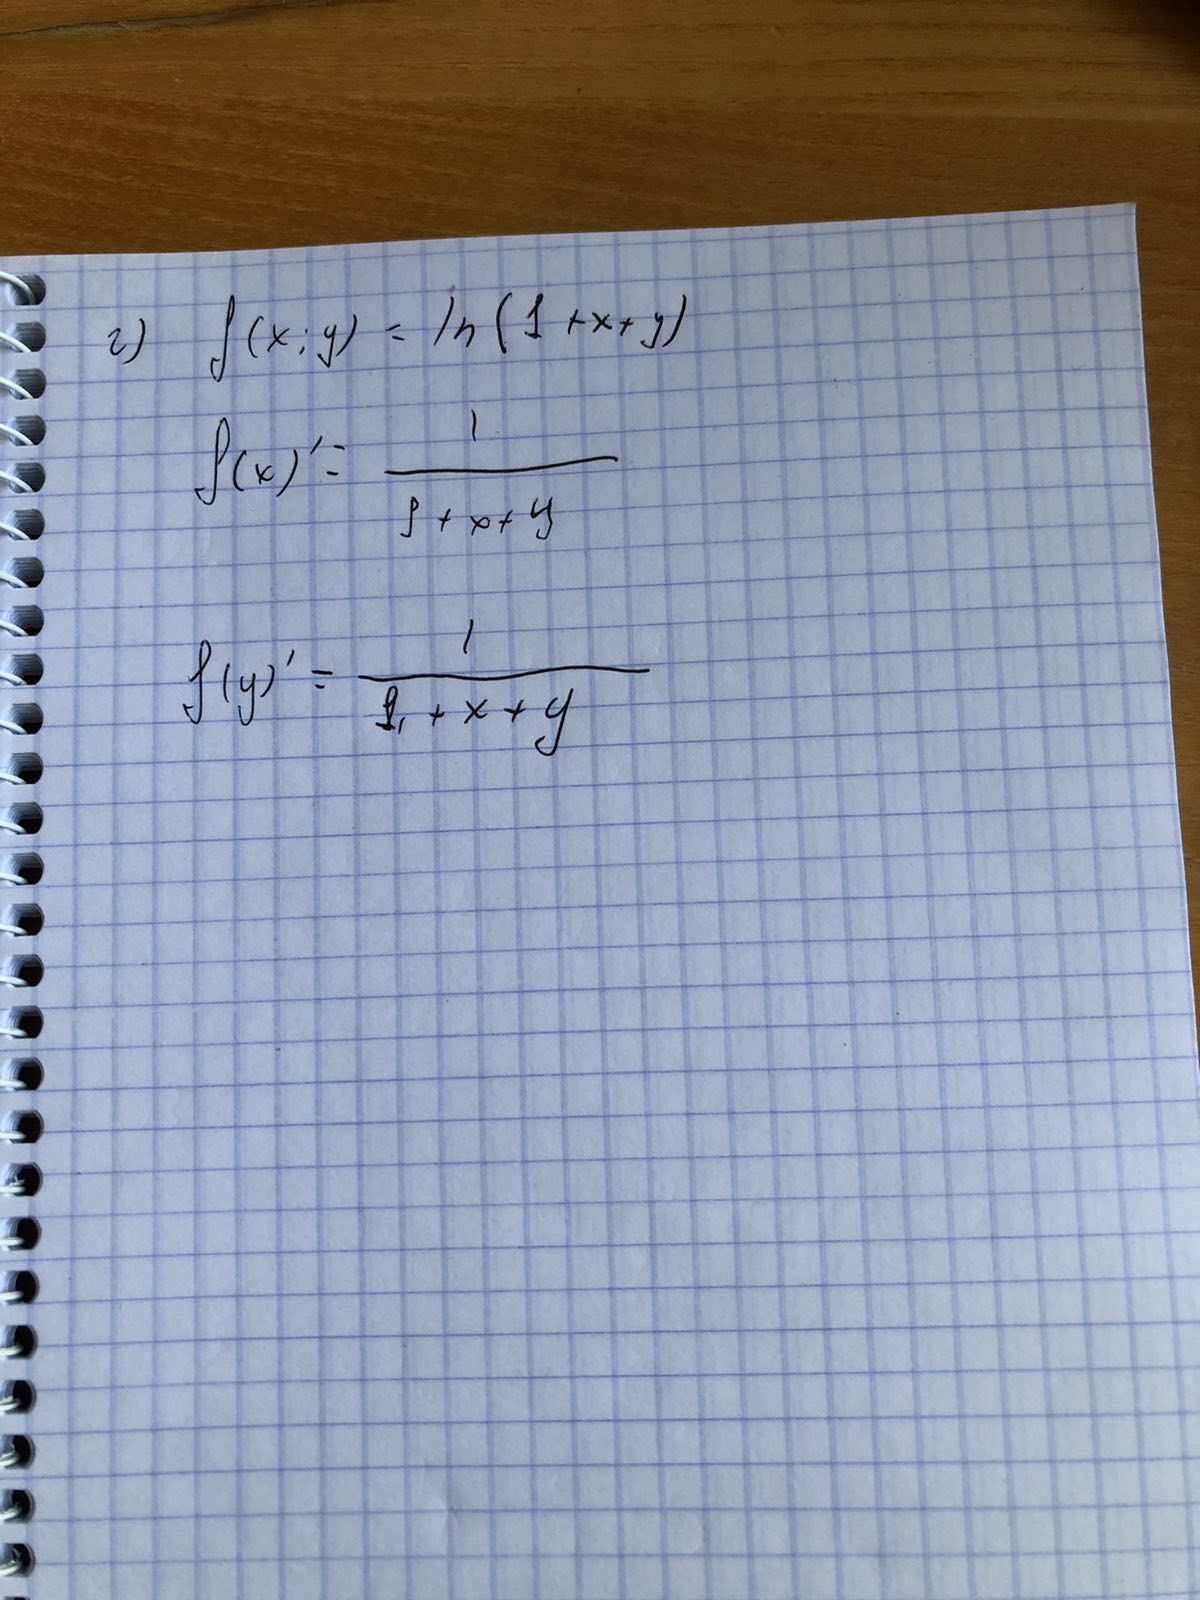 г) f(x; y) = ln(1 + x + y)
f(x)' = 1 / (1 + x + y)
f(y)' = 1 / (1 + x + y)